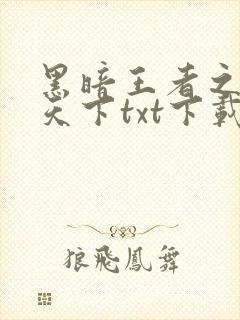 黑暗王者之
天下txt下載
狼飛鳳舞